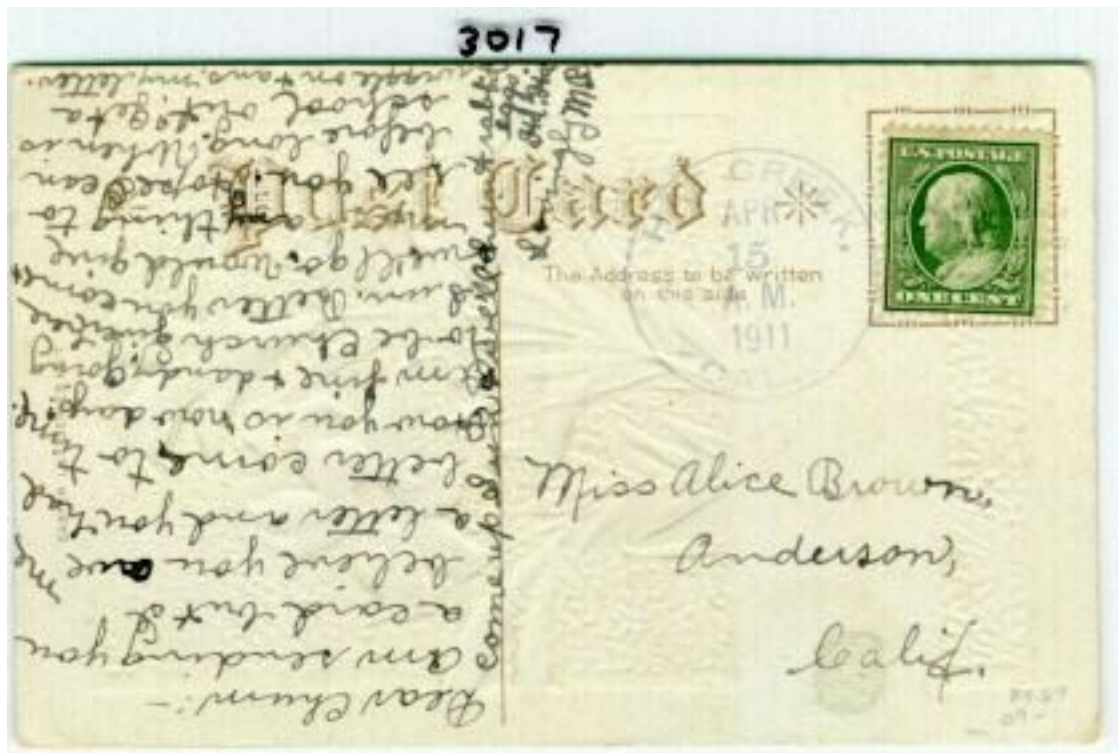 3017
Post Card
The Address to be written
on this side
CREEK
APR
15
A.M.
1911
CAL.
U.S. POSTAGE
ONE CENT
Miss Alice Brown,
Anderson,
Calif.
Dear Chum:-
Am sending you
a card but I
believe you owe me
a letter and you had
better come to time.
How you is now days?
Am fine & dandy. Going
to be Church
Sun. Better you come &
we'll go. Would give
most anything to
see you. Hopes I can
before long. When is
school out? Get a
wiggle on & ans. my letter.